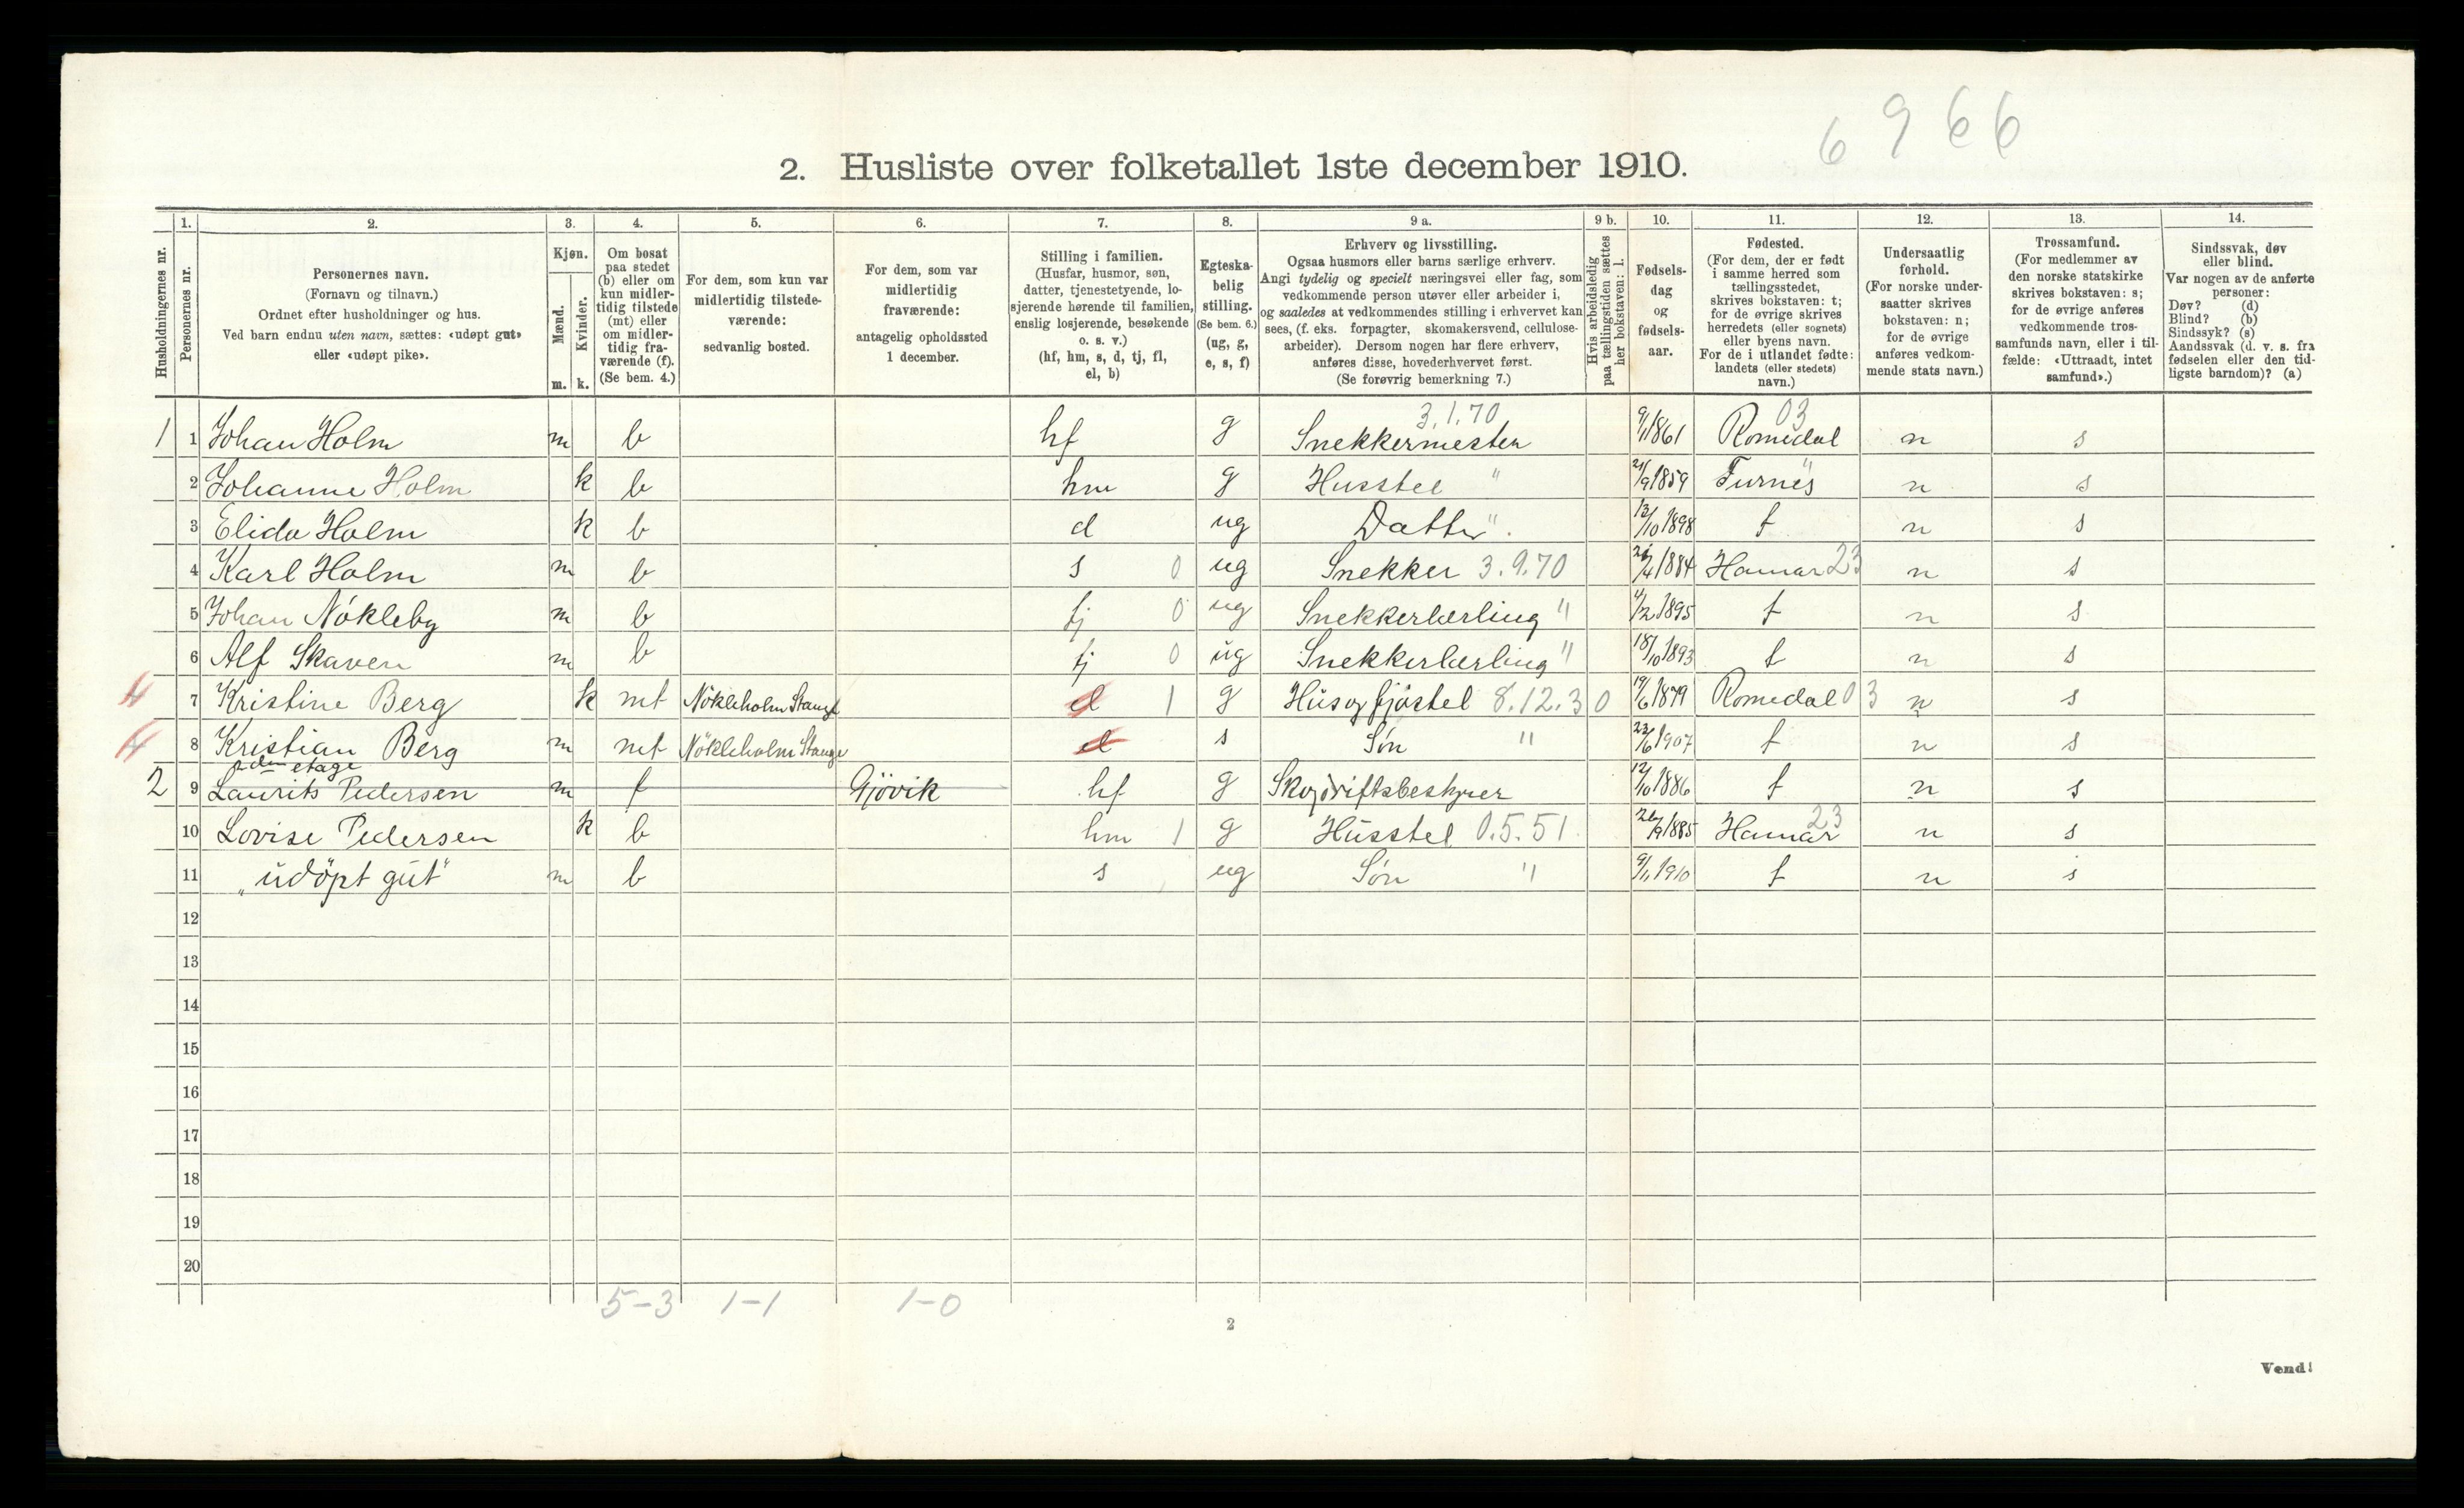 6966
2. Husliste over folketallet 1ste december 1910.
Husholdningernes nr.
1.
Personernes nr.
2.
Personernes navn.
(Fornavn og tilnavn.)
Ordnet efter husholdninger og hus.
Ved barn endnu uten navn, sættes: «udøpt gut»
eller «udøpt pike».
3.
Kjøn.
Mænd.
m.
Kvinder.
k.
4.
Om bosat
paa stedet
(b) eller om
kun midler-
tidig tilstede
(mt) eller
om midler-
tidig fra-
værende (f).
(Se bem. 4.)
5.
For dem, som kun var
midlertidig tilstede-
værende:
sedvanlig bosted.
6.
For dem, som var
midlertidig
fraværende:
antagelig opholdssted
1 december.
7.
Stilling i familien.
(Husfar, husmor, søn,
datter, tjenestetyende, lo-
sjerende hørende til familien,
enslig losjerende, besøkende
o. s. v.)
(hf, hm, s, d, tj, fl,
el, b)
8.
Egteska-
belig
stilling.
(Se bem. 6.)
(ug, g,
e, s, f)
9 a.
Erhverv og livsstilling.
Ogsaa husmors eller barns særlige erhverv.
Angi tydelig og specielt næringsvei eller fag, som
vedkommende person utøver eller arbeider i,
og saaledes at vedkommendes stilling i erhvervet kan
sees, (f. eks. forpagter, skomakersvend, cellulose-
arbeider). Dersom nogen har flere erhverv,
anføres disse, hovederhvervet først.
(Se forøvrig bemerkning 7.)
9 b.
Hvis arbeidsledig
paa tællingstiden sættes
her bokstaven: l.
10.
Fødsels-
dag
og
fødsels-
aar.
11.
Fødested.
(For dem, der er født
i samme herred som
tællingsstedet,
skrives bokstaven: t;
for de øvrige skrives
herredets (eller sognets)
eller byens navn.
For de i utlandet fødte:
landets (eller stedets)
navn.)
12.
Undersaatlig
forhold.
(For norske under-
saatter skrives
bokstaven: n;
for de øvrige
anføres vedkom-
mende stats navn.)
13.
Trossamfund.
(For medlemmer av
den norske statskirke
skrives bokstaven: s;
for de øvrige anføres
vedkommende tros-
samfunds navn, eller i til-
fælde: «Uttraadt, intet
samfund».)
14.
Sindssvak, døv
eller blind.
Var nogen av de anførte
personer:
Døv? (d)
Blind? (b)
Sindssyk? (s)
Aandssvak (d. v. s. fra
fødselen eller den tid-
ligste barndom)? (a)
3.1.70 03
1 1 Johan Holm m b hf g Snekkermester 9/1 1861 Romedal n s
2 Johanne Holm k b hm g Husstel " 21/9 1859 Furnes " n s
3 Elida Holm k b d ug Datter " 13/10 1898 t n s
4 Karl Holm m b s 0 ug Snekker 3.9.70 /4 1884 Hamar 23 n s
5 Johan Nökleby m b tj 0 ug Snekkerlærling " 4/2 1895 t n s
6 Alf Skaven m b tj 0 ug Snekkerlærling " 18/10 1893 t n s
4 7 Kristine Berg k mt Nökleholm Stange el 1 g Hus og fjøstel 8.12.30 19/6 1879 Romedal 03 n s
4 8 Kristian Berg m mt Nökleholm Stange el s Søn " 23/6 1907 t n s
2den etage
2 9 Laurits Pedersen m f Gjövik hf g Skogdriftsbestyrer 12/10 1886 t n s
10 Lovise Pedersen k b hm 1 g Husstel 0.5.51 26/9 1885 Hamar 23 n s
11 „udöpt gut" m b s ug Søn " 9/1 1910 t n s
12
13
14
15
16
17
18
19
20
5-3 1-1 1-0
2
Vend!